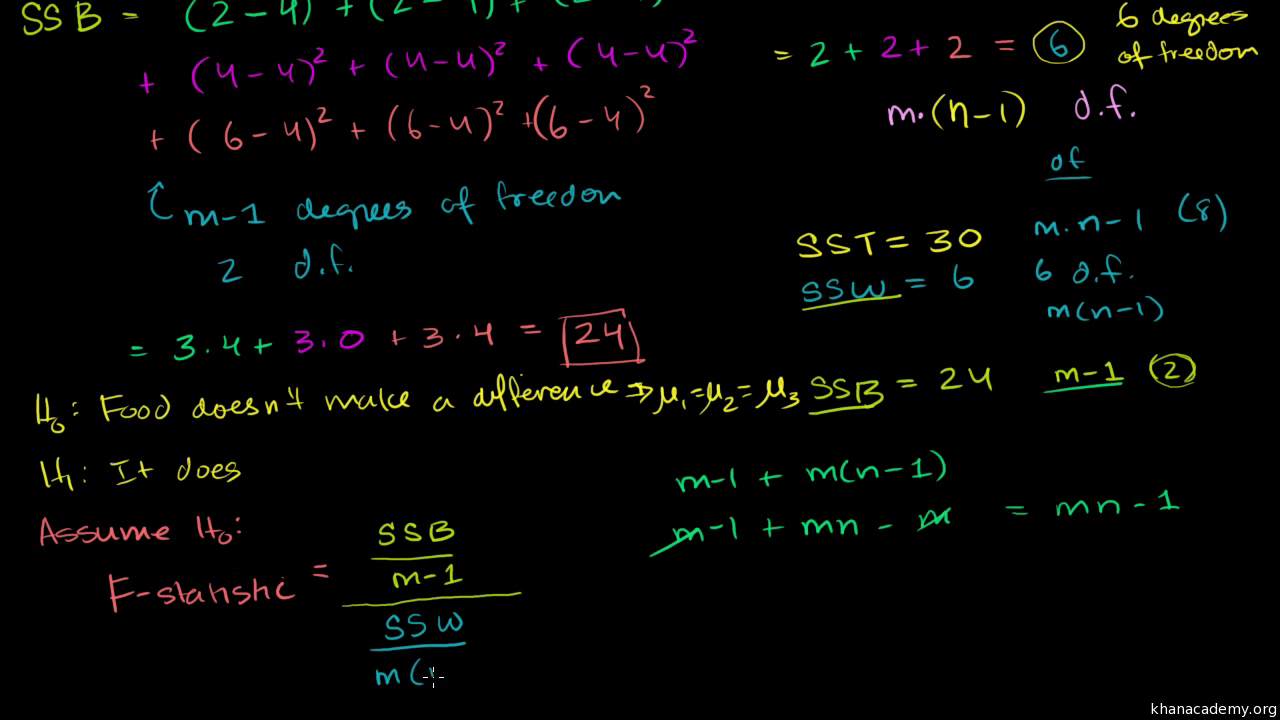 SSB = (2-4) + (2-4) + (2
+ (4-4)² + (4-4)² + (4-4)²
+ (6-4)² + (6-4)² + (6-4)²
m-1 degrees of freedom
2 d.f.
= 3.4 + 3.0 + 3.4 = 24
H₀: Food doesn't make a difference → μ₁=μ₂=μ₃
H₁: It does
Assume H₀:
F-statistic = SSB
m-1
SSW
m(
6 degrees
of freedom
= 2 + 2 + 2 = 6
m·(n-1) d.f.
of
SST = 30 m.n-1 (8)
SSW = 6 6 d.f.
m(n-1)
SSB = 24 m-1 (2)
m-1 + m(n-1)
m-1 + mn - m = mn-1
khanacademy.org